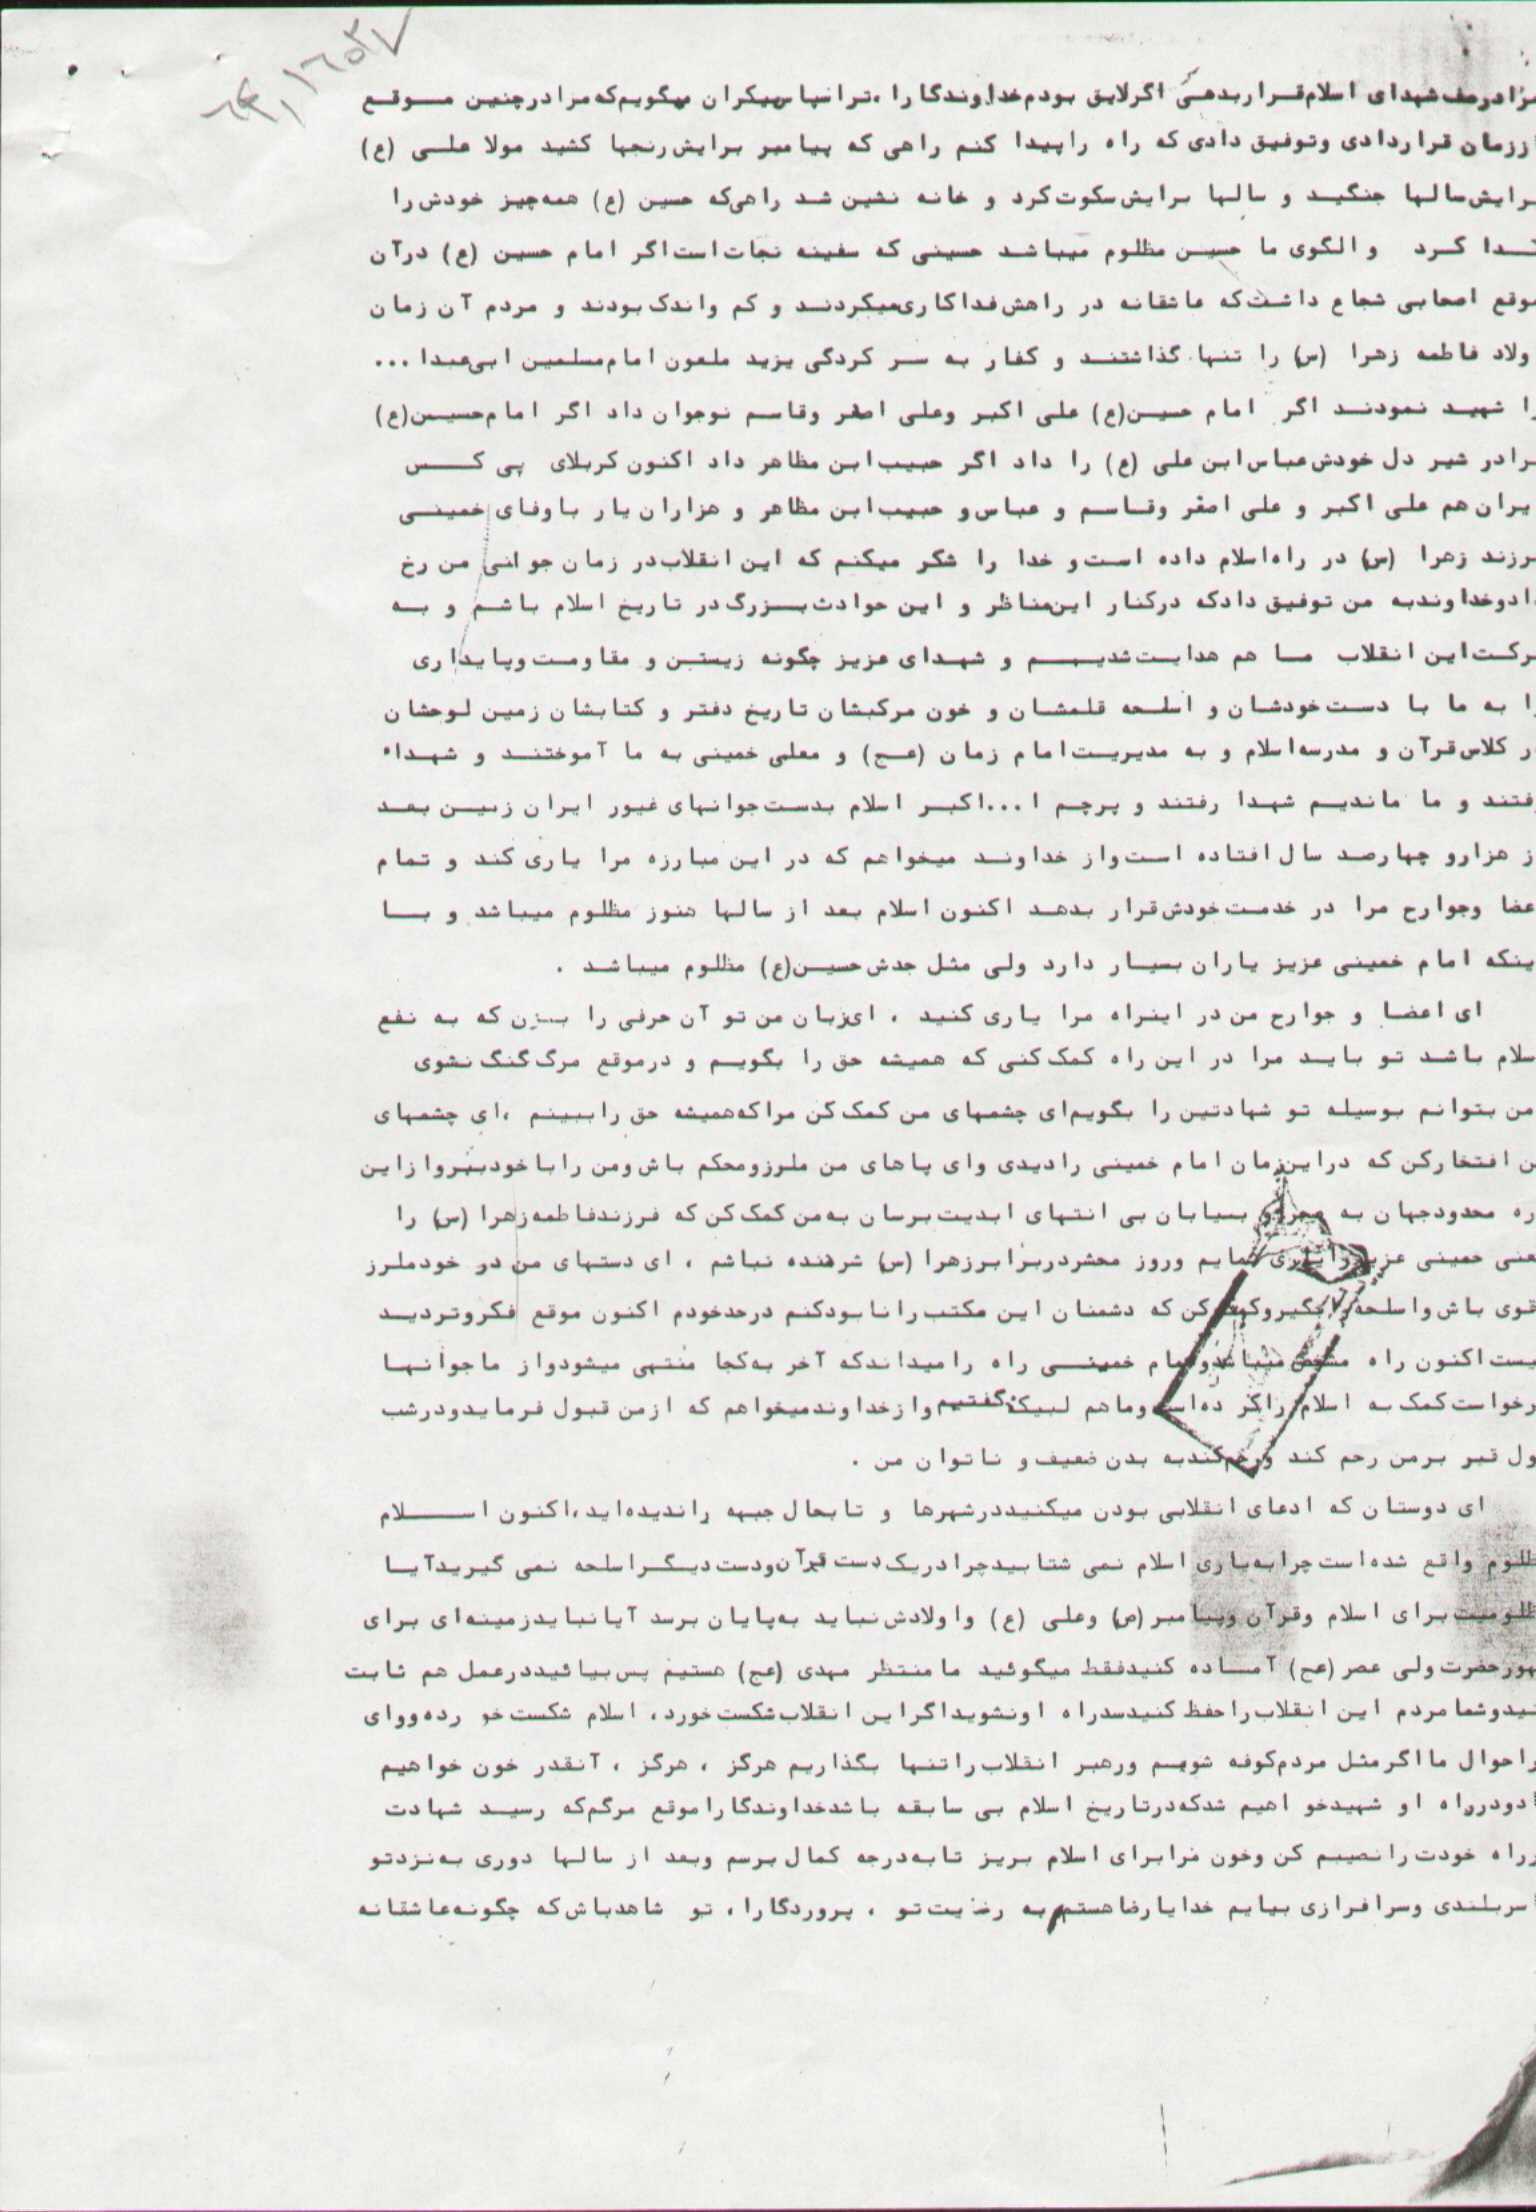 مرا در صف شهدای اسلام قرار بدهی اگر لایق بودم خداوندگارا ، ترا سپاس بیکران میگویم که مرا در چنین موقع
از زمان قرار دادی و توفیق دادی که راه را پیدا کنم راهی که پیامبر برایش رنجها کشید مولا علی (ع)
برایش سالها جنگید و سالها برایش سکوت کرد و خانه نشین شد راهی که حسین (ع) همه چیز خودش را
فدا کرد و الگوی ما حسین مظلوم میباشد حسینی که سفینه نجات است اگر امام حسین (ع) در آن
موقع اصحابی شجاع داشت که عاشقانه در راهش فداکاری میکردند و کم و اندک بودند و مردم آن زمان
اولاد فاطمه زهرا (س) را تنها گذاشتند و کفار به سر کردگی یزید ملعون امام مسلمین ابی عبدا ...
را شهید نمودند اگر امام حسین (ع) علی اکبر و علی اصغر و قاسم نوجوان داد اگر امام حسین (ع)
برادر شیر دل خودش عباس ابن علی (ع) را داد اگر حبیب ابن مظاهر داد اکنون کربلای بی کس
ایران هم علی اکبر و علی اصغر و قاسم و عباس و حبیب ابن مظاهر و هزاران یار باوفای خمینی
فرزند زهرا (س) در راه اسلام داده است و خدا را شکر میکنم که این انقلاب در زمان جوانی من رخ
داد و خداوند به من توفیق داد که در کنار این مناظر و این حوادث بزرگ در تاریخ اسلام باشم و به
برکت این انقلاب ما هم هدایت شدیم و شهدای عزیز چگونه زیستن و مقاومت و پایداری
را به ما با دست خودشان و اسلحه قلمشان و خون مرکبشان تاریخ دفتر و کتابشان زمین لوحشان
در کلاس قرآن و مدرسه اسلام و به مدیریت امام زمان (عج) و معلمی خمینی به ما آموختند و شهداء
رفتند و ما ماندیم شهدا رفتند و پرچم ا ... اکبر اسلام بدست جوانهای غیور ایران زمین بعد
از هزارو چهارصد سال افتاده است و از خداوند میخواهم که در این مبارزه مرا یاری کند و تمام
اعضا و جوارح مرا در خدمت خودش قرار بدهد اکنون اسلام بعد از سالها هنوز مظلوم میباشد و با
اینکه امام خمینی عزیز یاران بسیار دارد ولی مثل جدش حسین (ع) مظلوم میباشد .
ای اعضا و جوارح من در اینراه مرا یاری کنید ، ای زبان من تو آن حرفی را بزن که به نفع
اسلام باشد تو باید مرا در این راه کمک کنی که همیشه حق را بگویم و در موقع مرگ گنگ نشوی
من بتوانم بوسیله تو شهادتین را بگویم ای چشمهای من کمک کن مرا که همیشه حق را ببینم ، ای چشمهای
من افتخار کن که در این زمان امام خمینی را دیدی و ای پاهای من ملرز و محکم باش و من را با خود ببر و از این
کره محدود جهان به صحرا و بیابان بی انتهای ابدیت برسان به من کمک کن که فرزند فاطمه زهرا (س) را
یعنی خمینی عزیز را یاری نمایم و روز محشر در برابر زهرا (س) شرمنده نباشم ، ای دستهای من در خود ملرز
قوی باش و اسلحه را بگیر و کمک کن که دشمنان این مکتب را نابود کنم در حد خودم اکنون موقع فکر و تردید
نیست اکنون راه مشخص میباشد و امام خمینی راه را میداند که آخر به کجا منتهی میشود و از ما جوانها
درخواست کمک به اسلام را کرده است و ما هم لبیک گفتیم و از خداوند میخواهم که از من قبول فرماید و در شب
اول قبر بر من رحم کند و رحم کند به بدن ضعیف و ناتوان من .
ای دوستان که ادعای انقلابی بودن میکنید در شهرها و تا بحال جبهه را ندیده اید ، اکنون اسلام
مظلوم واقع شده است چرا به یاری اسلام نمی شتابید چرا در یک دست قرآن و دست دیگر اسلحه نمی گیرید آیا
مظلومیت برای اسلام و قرآن و پیامبر (ص) و علی (ع) و اولادش نباید به پایان برسد آیا نباید زمینه ای برای
ظهور حضرت ولی عصر (عج) آماده کنید فقط میگوئید ما منتظر مهدی (عج) هستیم پس بیائید در عمل هم ثابت
کنید و شما مردم این انقلاب را حفظ کنید سد راه او نشوید اگر این انقلاب شکست خورد ، اسلام شکست خورده و وای
بر احوال ما اگر مثل مردم کوفه شویم و رهبر انقلاب را تنها بگذاریم هرگز ، هرگز ، آنقدر خون خواهیم
داد و در راه او شهید خواهیم شد که در تاریخ اسلام بی سابقه باشد خداوندگارا موقع مرگم که رسید شهادت
در راه خودت را نصیبم کن و خون مرا برای اسلام بریز تا به درجه کمال برسم و بعد از سالها دوری به نزد تو
با سربلندی و سرافرازی بیایم خدایا رضا هستم به رضایت تو ، پروردگارا ، تو شاهد باش که چگونه عاشقانه